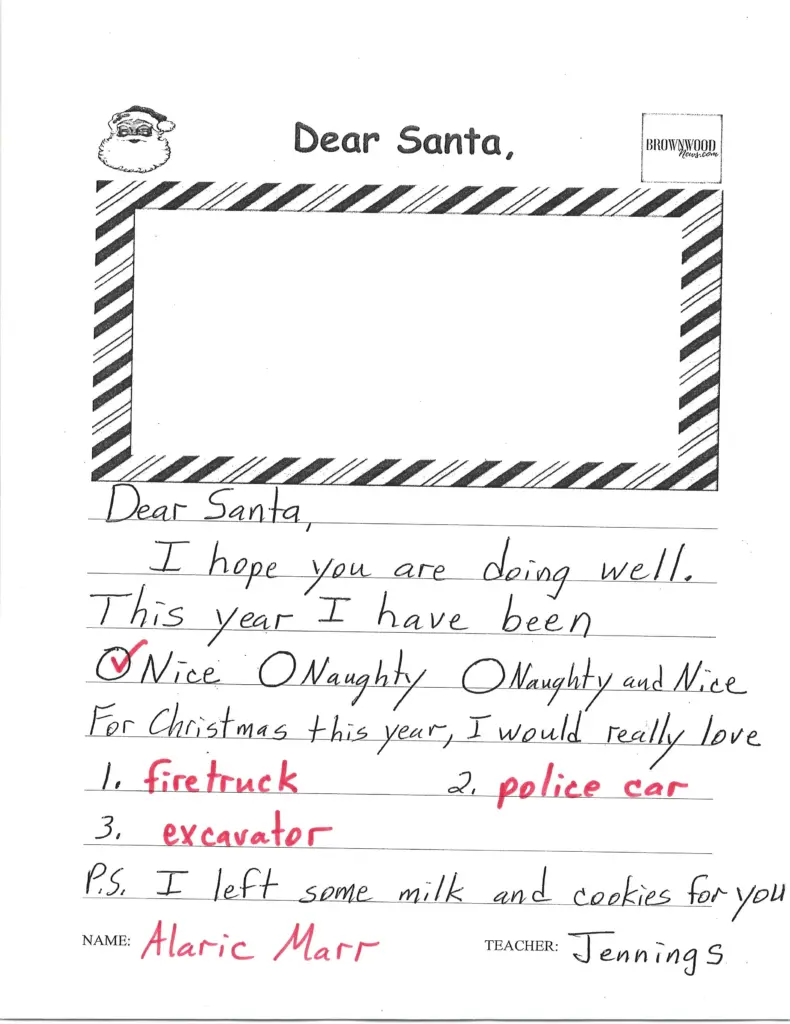 Dear Santa,
BROWNWOOD
News.com
Dear Santa,
I hope you are doing well.
This year I have been
Nice Naughty Naughty and Nice
For Christmas this year, I would really love
1. firetruck 2. police car
3. excavator
P.S. I left some milk and cookies for you
NAME: Alaric Marr TEACHER: Jennings